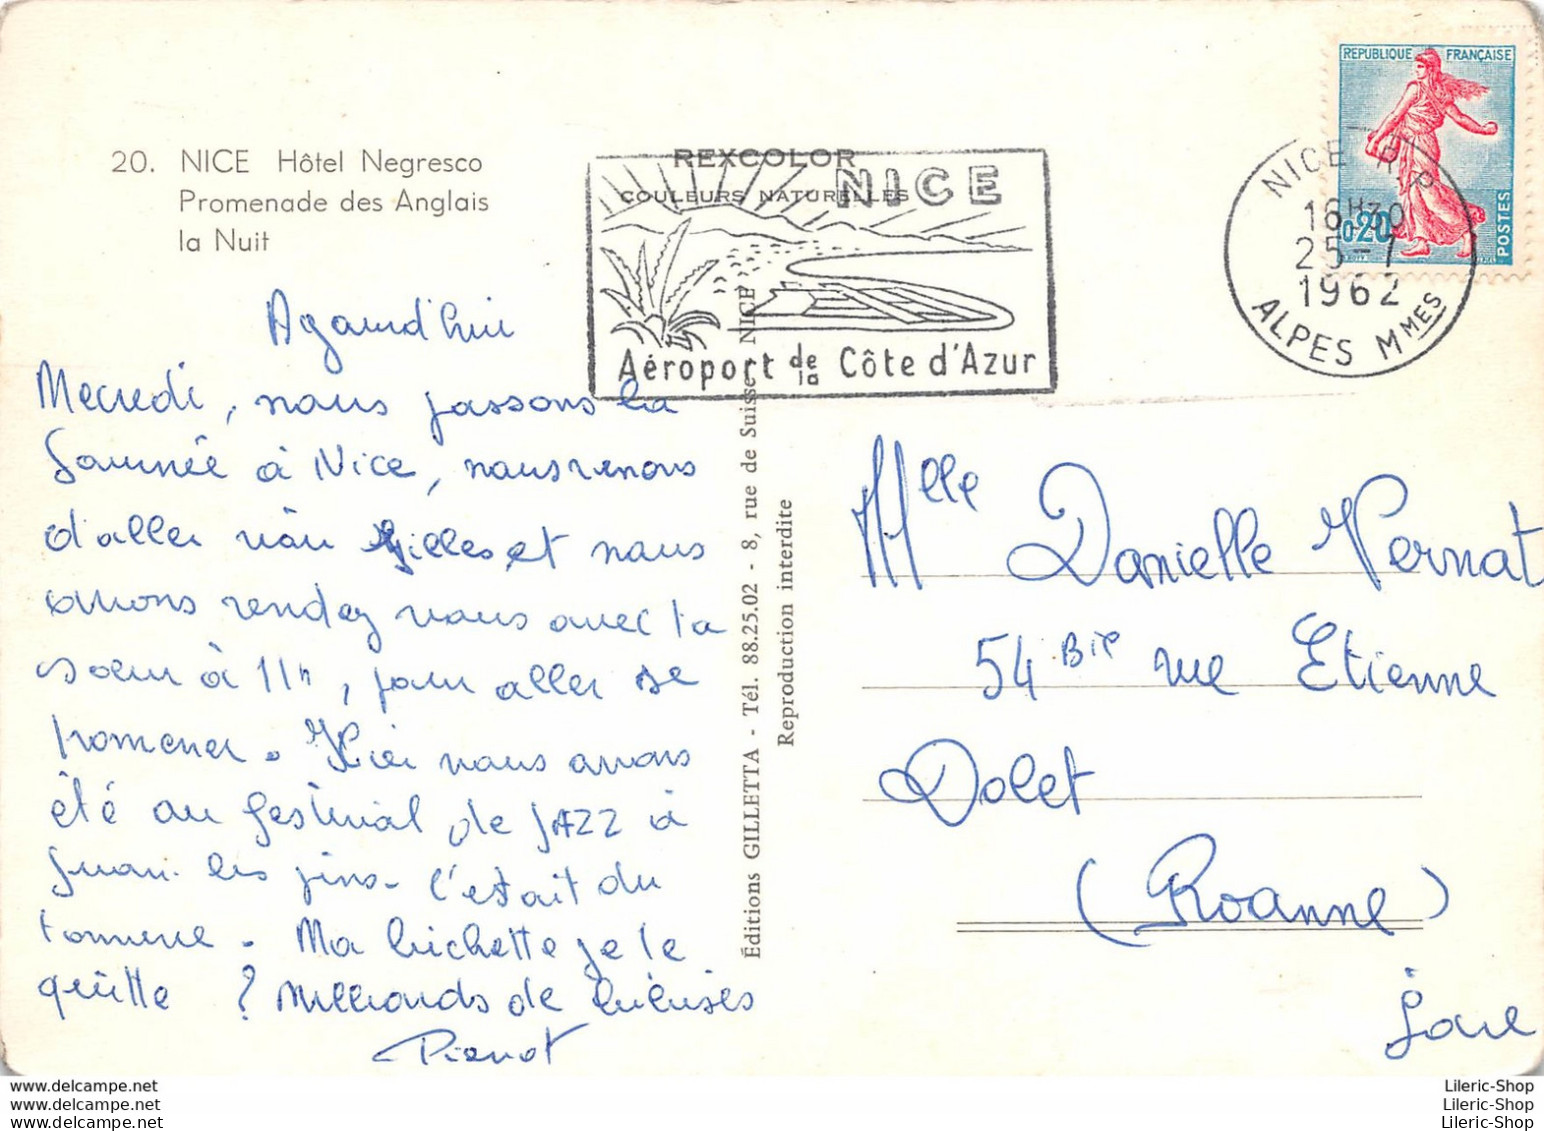 20. NICE Hôtel Negresco
Promenade des Anglais
la Nuit
REXCOLOR
COULEURS NATURELLES
NICE
Aéroport de la Côte d'Azur
REPUBLIQUE FRANÇAISE
0,20
POSTES
NICE R.P
16H30
25-7
1962
ALPES MMES
Mecredi, nous passons la
Journée à Nice, nous venons
d'aller voir Gilles et nous
avons rendez vous avec ta
soeur à 11h, pour aller se
promener. Hier nous avons
été au festival de JAZZ à
Juan. les pins. c'était du
tonnerre. Ma bichette je te
quitte ? Milliards de
Pierrot
Éditions GILLETTA - Tél. 88.25.02 - 8, rue de Suisse - NICE
Reproduction interdite
Mlle Danielle Vernat
54 Bis rue Etienne
Dolet
(Roanne)
Loire
www.delcampe.net
Lileric-Shop
www.delcampe.net
Lileric-Shop
www.delcampe.net
Lileric-Shop